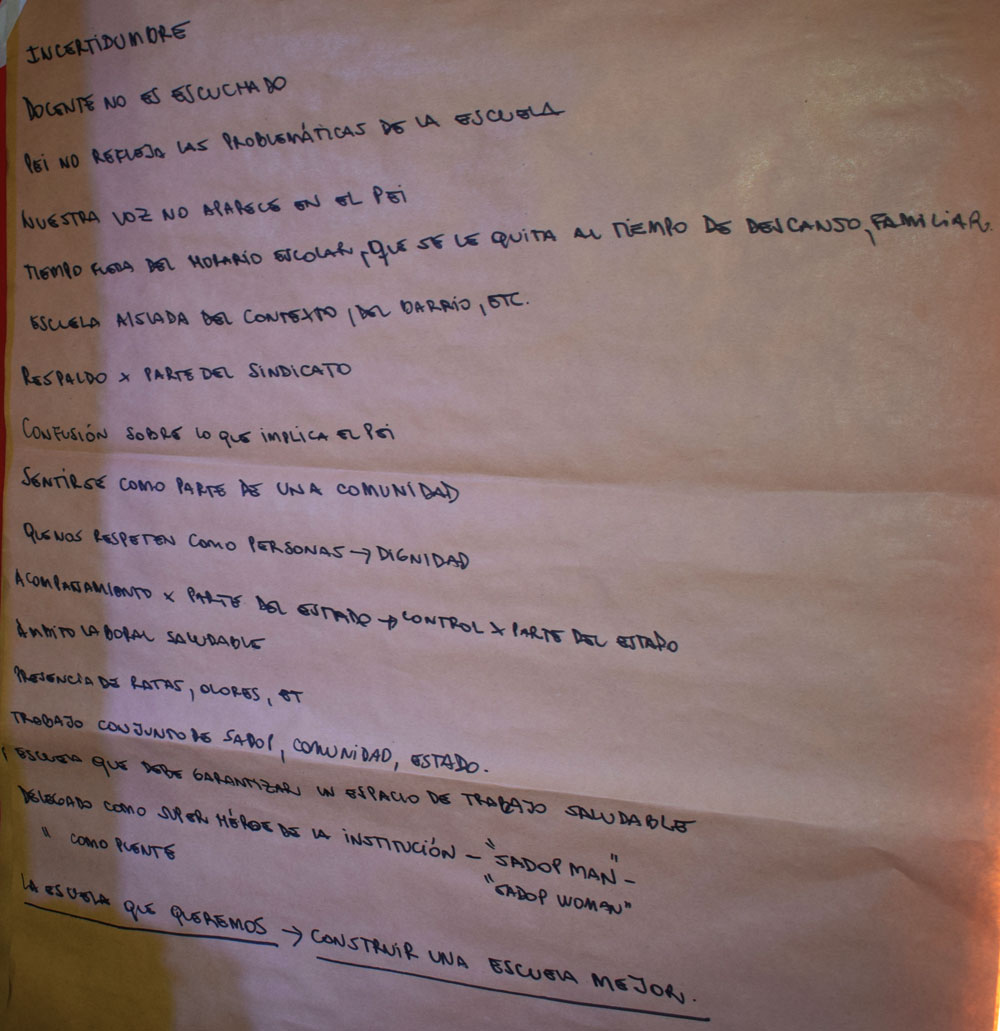 INCERTIDUMBRE
DOCENTE NO ES ESCUCHADO
PEI NO REFLEJA LAS PROBLEMÁTICAS DE LA ESCUELA
NUESTRA VOZ NO APARECE EN EL PEI
TIEMPO FUERA DEL HORARIO ESCOLAR, QUE SE LE QUITA AL TIEMPO DE DESCANSO, FAMILIAR.
ESCUELA AISLADA DEL CONTEXTO, DEL BARRIO, ETC.
RESPALDO X PARTE DEL SINDICATO
CONFUSIÓN SOBRE LO QUE IMPLICA EL PEI
SENTIRSE COMO PARTE DE UNA COMUNIDAD
QUE NOS RESPETEN COMO PERSONAS → DIGNIDAD
ACOMPAÑAMIENTO X PARTE DEL ESTADO → CONTROL X PARTE DEL ESTADO
ÁMBITO LABORAL SALUDABLE
PRESENCIA DE RATAS, OLORES, ET
TRABAJO CONJUNTO DE SADOP, COMUNIDAD, ESTADO.
ESCUELA QUE DEBE GARANTIZAR UN ESPACIO DE TRABAJO SALUDABLE
DELEGADO COMO SUPER HÉROE DE LA INSTITUCIÓN – "SADOP MAN" –
"SADOP WOMAN"
" COMO PUENTE
LA ESCUELA QUE QUEREMOS → CONSTRUIR UNA ESCUELA MEJOR.